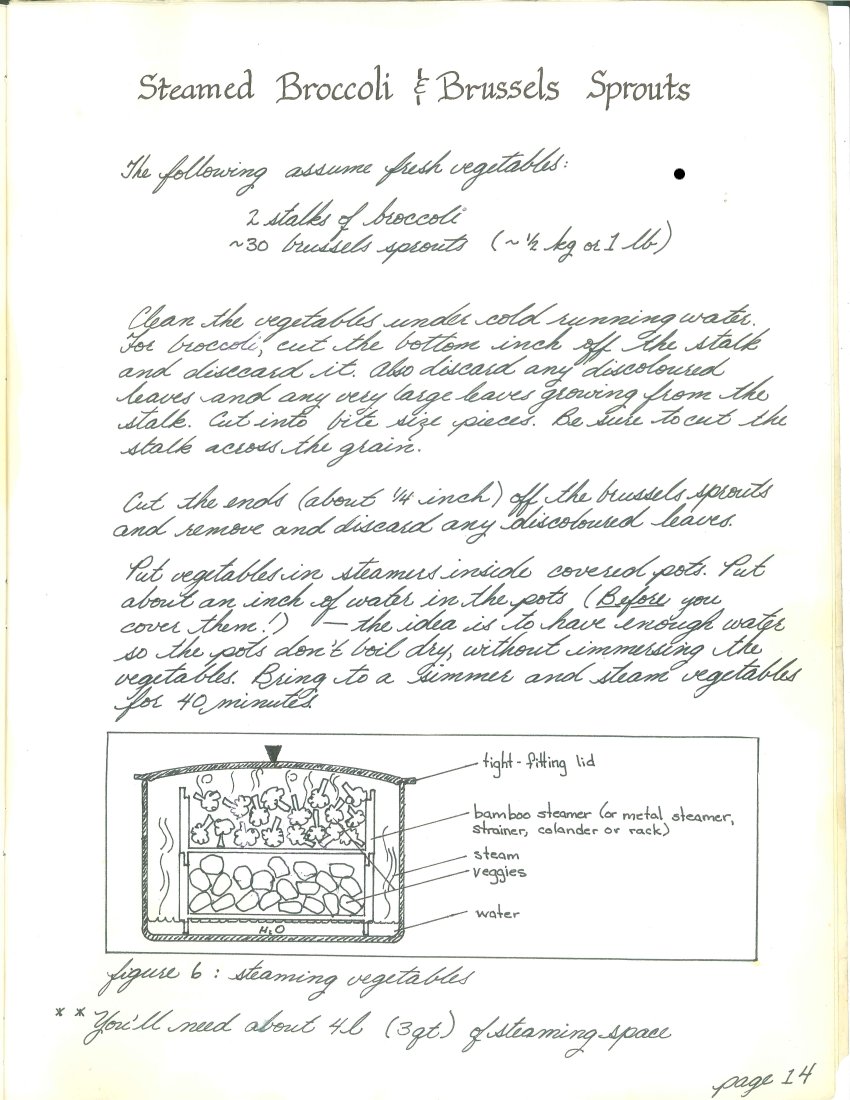 Steamed Broccoli & Brussels Sprouts
The following assume fresh vegetables:
2 stalks of broccoli
~30 brussels sprouts (~ ½ kg or 1 lb)
Clean the vegetables under cold running water.
For broccoli, cut the bottom inch off the stalk
and disccard it. Also discard any discoloured
leaves and any very large leaves growing from the
stalk. Cut into bite size pieces. Be sure to cut the
stalk across the grain.
Cut the ends (about ¼ inch) off the brussels sprouts
and remove and discard any discoloured leaves.
Put vegetables in steamers inside covered pots. Put
about an inch of water in the pots (Before you
cover them!) — the idea is to have enough water
so the pots don't boil dry, without immersing the
vegetables. Bring to a simmer and steam vegetables
for 40 minutes.
tight-fitting lid
bamboo steamer (or metal steamer,
strainer, colander or rack)
steam
veggies
water
H₂O
figure 6: steaming vegetables
** You'll need about 4l (3qt) of steaming space
page 14